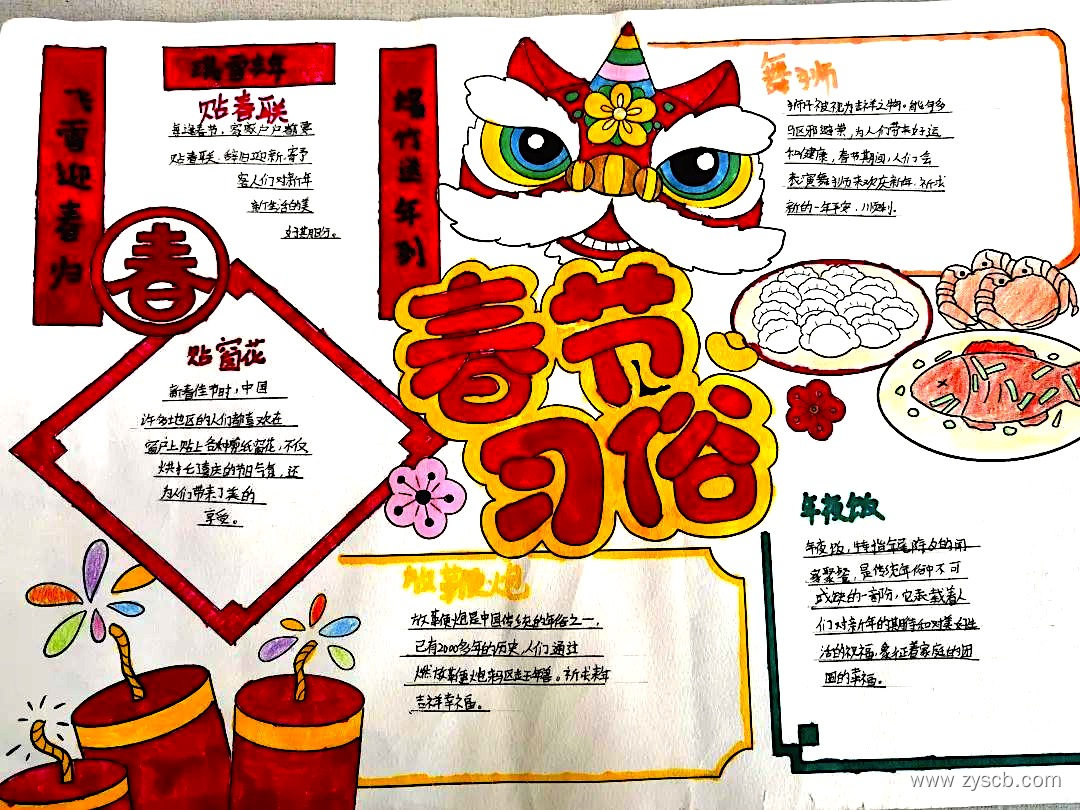 飞雪迎春归
瑞雪丰年
爆竹送年到
贴春联
每逢春节，家家户户都要
贴春联，辞旧迎新，寄予
客人们对新年
新生活的美
好期盼。
春
舞狮
狮子被视为吉祥之物。能够多
区邪避带，为人们带来好运
和健康，春节期间，人们会
表演舞狮来欢庆新年，祈求
新的一年平安、顺利。
春节
习俗
贴窗花
新春佳节时，中国
许多地区的人们都喜欢在
窗户上贴上各种剪纸窗花，不仅
烘托了喜庆的节日气氛，还
为人们带来了美的
享受。
放鞭炮
放鞭炮是中国传统的年俗之一，
已有2000多年的历史，人们通过
燃放鞭炮来区走年兽。祈求来年
吉祥幸福。
年夜饭
年夜饭，特指年尾除夕的阖
家聚餐，是传统年俗中不可
或缺的一部分，它承载着人
们对新年的期待和对美好生
活的祝福，象征着家庭的团
圆的幸福。
www.zyscb.com